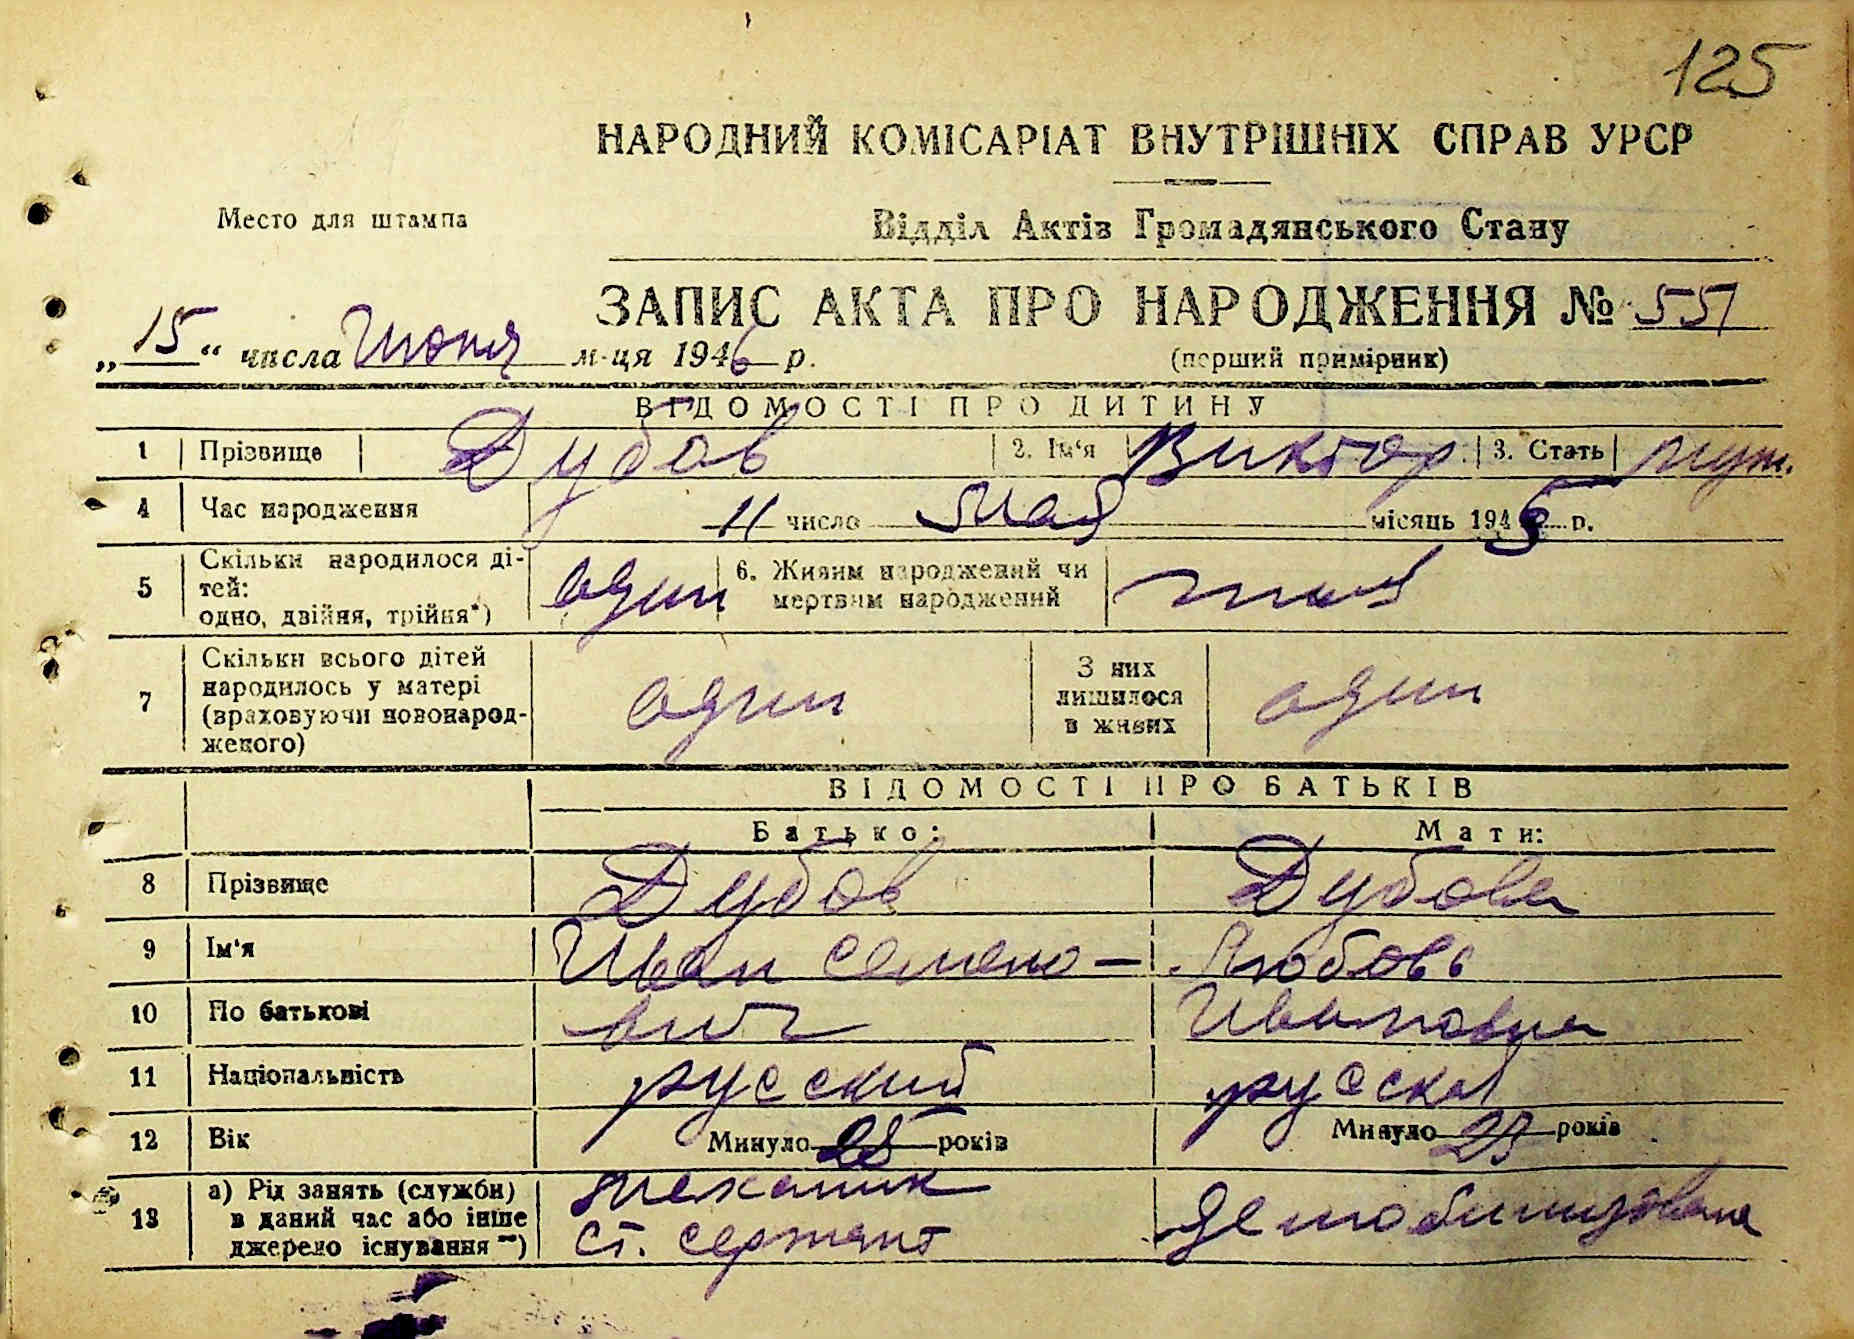 125
НАРОДНИЙ КОМІСАРІАТ ВНУТРІШНІХ СПРАВ УРСР
Место для штампа
Відділ Актів Громадянського Стану
ЗАПИС АКТА ПРО НАРОДЖЕННЯ № 551
„15“ числа Июня м-ця 1946 р.
(перший примірник)
ВІДОМОСТІ ПРО ДИТИНУ
1 Прізвище Дубов 2. Ім'я Виктор 3. Стать муж.
4 Час народження 11 число мая місяць 1946 р.
5 Скільки народилося дітей: одно, двійня, трійня*) один 6. Живим народжений чи мертвим народжений
7 Скільки всього дітей народилось у матері (враховуючи новонародженого) один З них лишилося в живих один
ВІДОМОСТІ ПРО БАТЬКІВ
Батько: Мати:
8 Прізвище Дубов Дубова
9 Ім'я Иван Семено- Любовь
10 По батькові вич Ивановна
11 Національність русский русская
12 Вік Минуло 28 років Минуло 23 років
13 а) Рід занять (служби) механик
в даний час або інше
джерело існування**) ст. сержант демобилизована